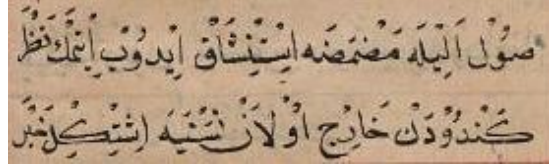 صُولْ اَلِيلَه مَضْمَضَه اِسْتِنْشَاقْ اِيدُوبْ اِتْمَكْ نَظَرْ
كَنْدُودَنْ خَارِجْ اَوْلَانْ نَسْنَيَه اِشْتِكِلْ خَبَرْ